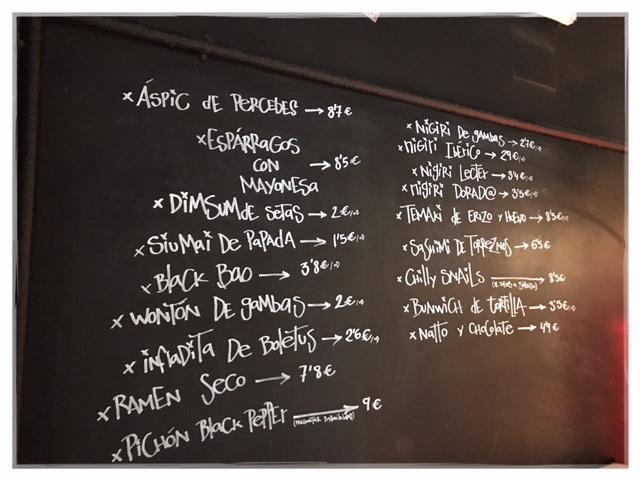 x ÁSPIC dE PERCEBES → 8'7 €
x ESPÁRRAGOS
CON → 8'5 €
MAYONESA
x DiMSUM dE SETAS → 2 €
x SiUMAi DE PAPADA → 1'5 €
x BLACK BAO → 3'8 €
x WONTÓN DE gambas → 2 €
x iNFLADiTA DE BOLETUS → 2'6 €
x RAMEN SECO → 7'8 €
x PiCHÓN BLACK PEPPER → 9 €
x NiGiRi DE gambas → 2'7 €
x niGiRi IBÉRiCO → 2'9 €
x Nigiri LECTER → 3'4 €
x niGiRi DORAD@ → 3'5 €
x TEMAKi dE ERiZO y HUEVO → 8'5 €
x SASHiMi DE TORREZNOS → 6'5 €
x CHiLLy SNAiLS → 8'5 €
x BUNWiCH dE TORTiLLA → 3'5 €
x NATTO y CHOCOLATE → 4'9 €